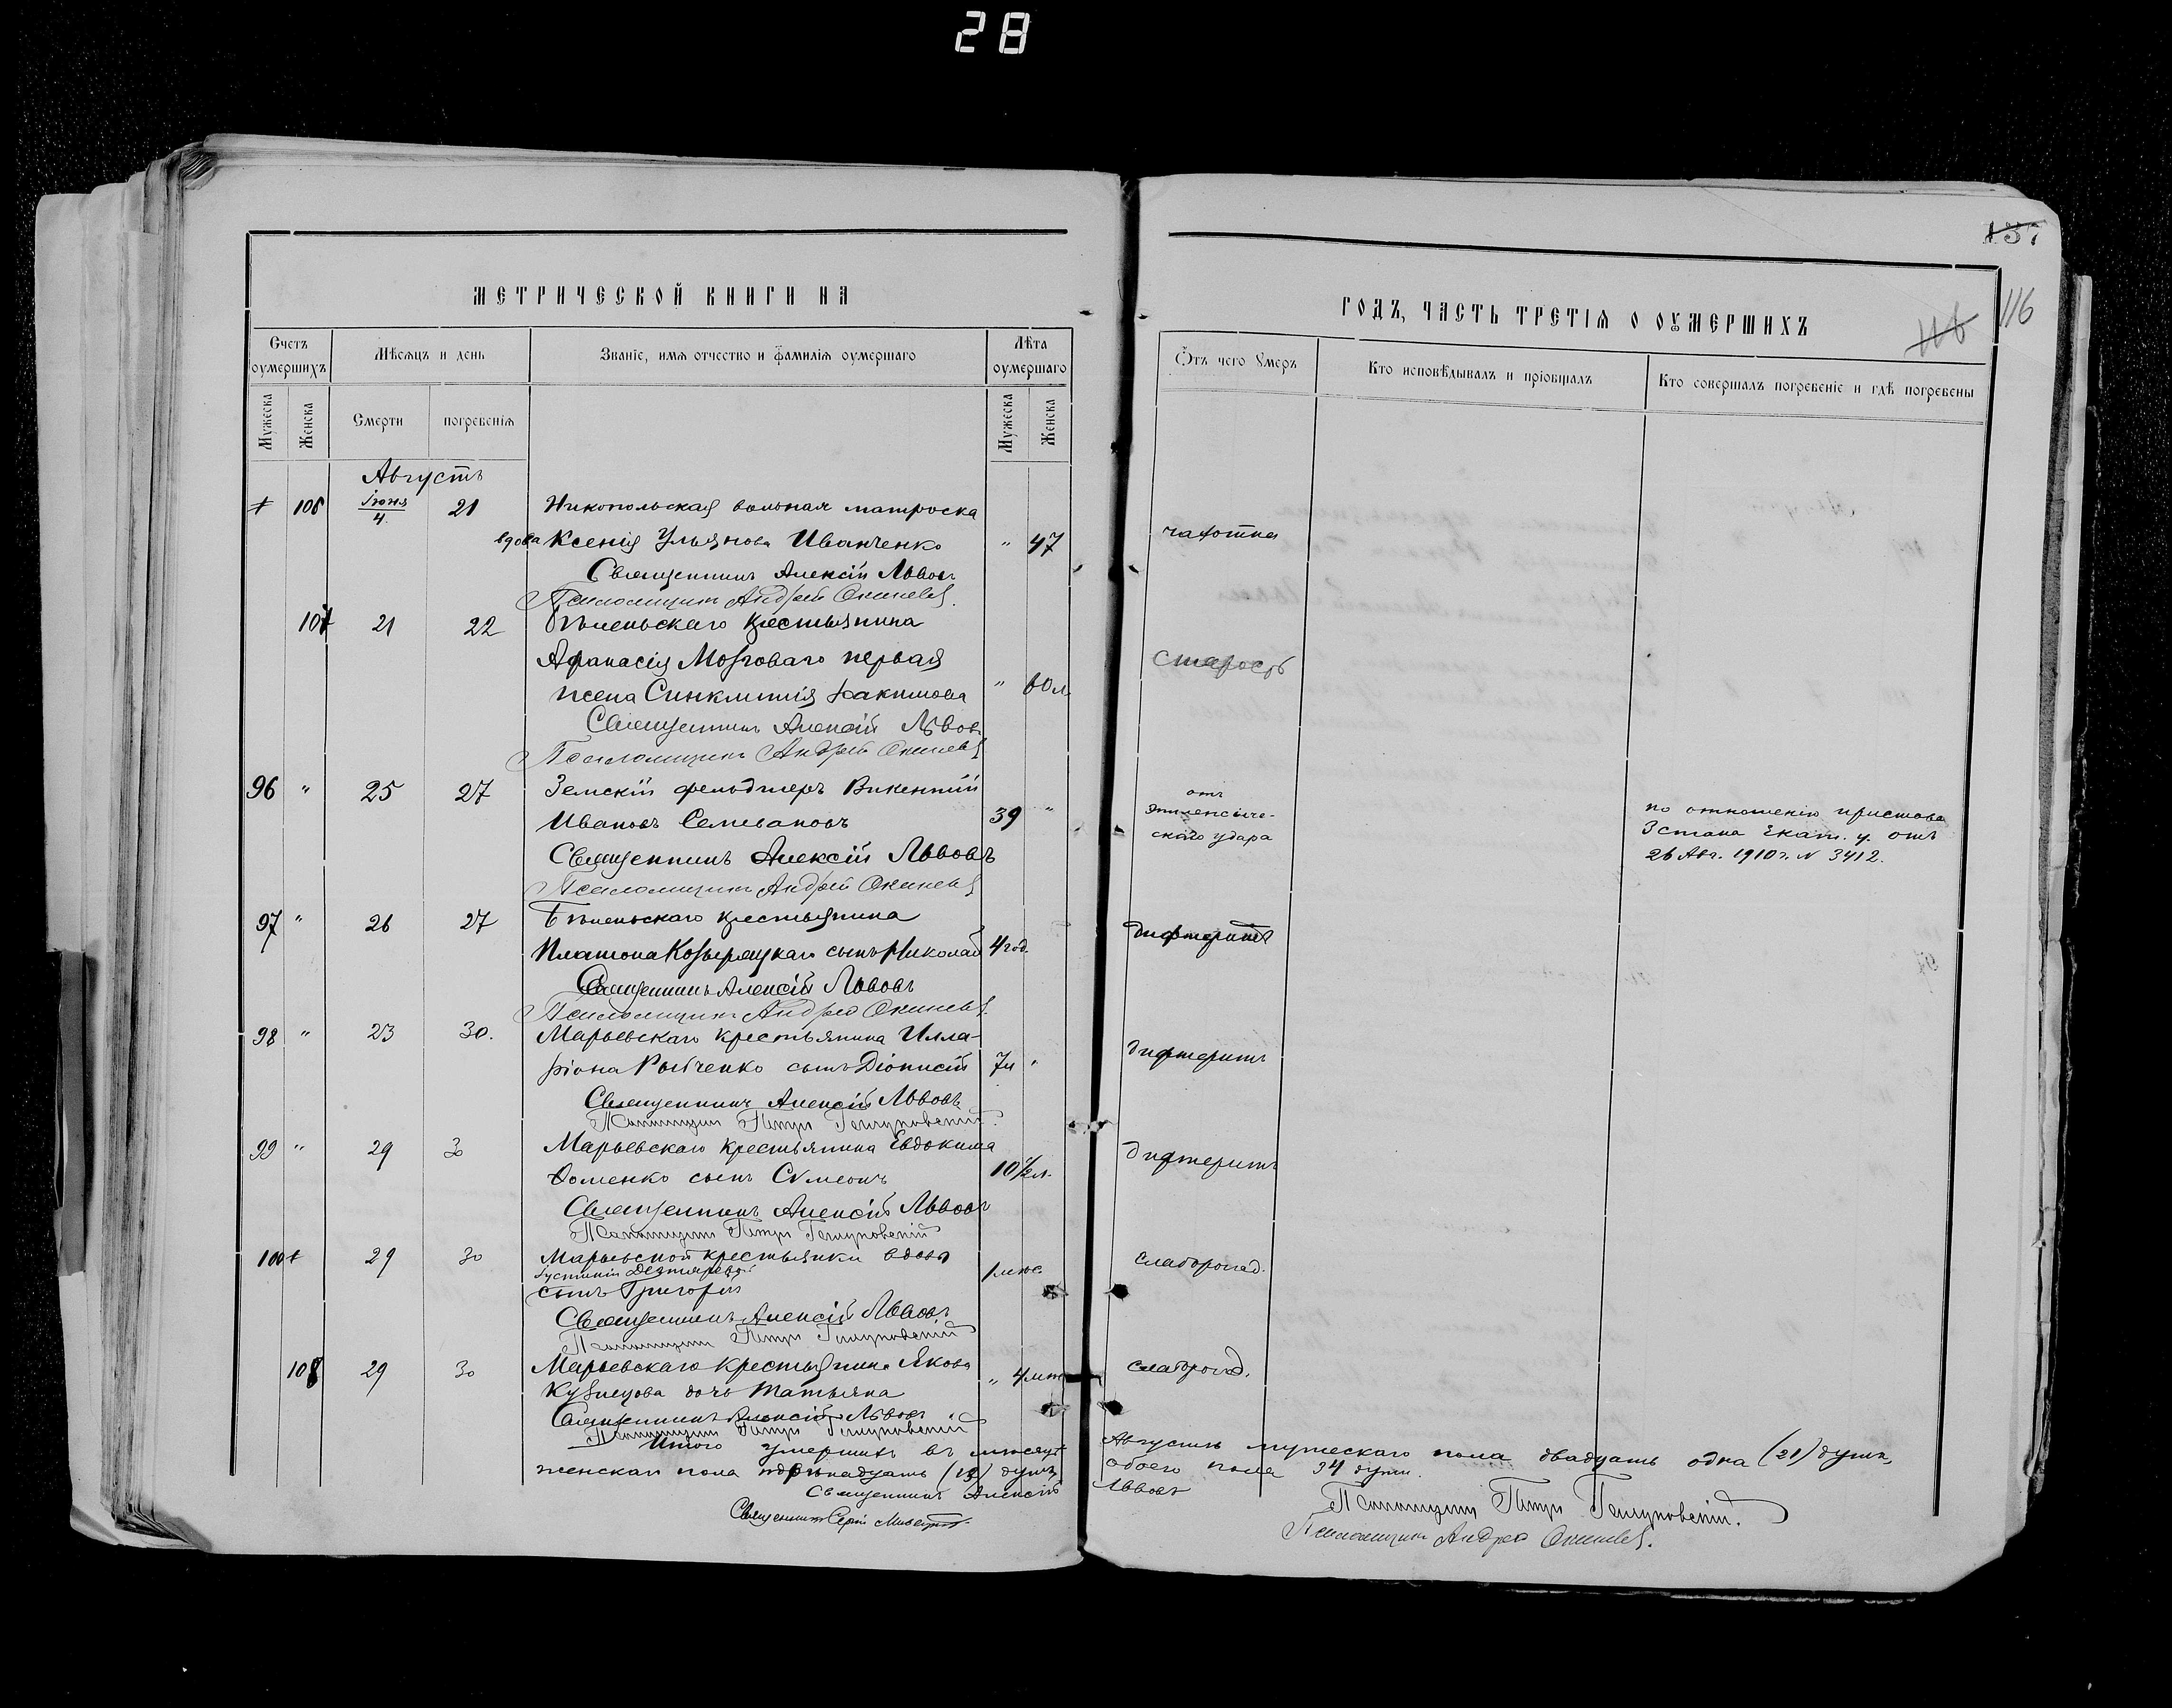 28
137
МЕТРИЧЕСКОЙ КНИГИ НА
ГОДЪ, ЧАСТЬ ТРЕТІЯ О ОУМЕРШИХЪ
116
116
Счетъ оумершихъ
Мѣсяцъ и день
Званіе, имя отчество и фамилія оумершаго
Лѣта оумершаго
Отъ чего умеръ
Кто исповѣдывалъ и пріобщалъ
Кто совершалъ погребеніе и гдѣ погребены
Мужеска
Женска
Смерти
погребенія
Мужеска
Женска
Августъ
106 Іюня 4. 21 Никопольская вольная матроска
вдова Ксенія Ульянова Иванченко " 47 чахотка
Священникъ Алексій Львовъ
Псаломщикъ Андрей
107 21 22 Бѣленьскаго крестьянина
Афанасія Мозговаго первая
жена Синклитикія Іоакимова " 60 л. старость
Священникъ Алексій Львовъ
Псаломщикъ Андрей
96 " 25 27 Земскій фельдшеръ Викентій
Ивановъ Селивановъ 39 "
отъ
эпилепсиче-
скаго удара
по отношенію пристава
3 стана Екат. у. отъ
26 Авг. 1910 г. N 3412.
Священникъ Алексій Львовъ
Псаломщикъ Андрей
97 " 26 27 Бѣленьскаго крестьянина
Платона сынъ Николай 4 год. дифтеритъ
Священникъ Алексій Львовъ
Псаломщикъ Андрей
98 " 23 30. Марьевскаго крестьянина Илла-
ріона сынъ Діонисій " дифтеритъ
Священникъ Алексій Львовъ
Псаломщикъ Петръ
99 " 29 30 Марьевскаго крестьянина Евдокима
Фоменко сынъ Сѵмеонъ 10 1/2 л. дифтеритъ
Священникъ Алексій Львовъ
Псаломщикъ Петръ
100 29 30 Марьевской крестьянки вдовы
Дегтяревой
сынъ Григорій 1 мѣс. слаборожд.
Священникъ Алексій Львовъ
Псаломщикъ Петръ
108 29 30 Марьевскаго крестьянина Якова
Кузнецова дочь Татьяна " слаборожд.
Священникъ Алексій Львовъ
Псаломщикъ Петръ
Итого умершихъ въ мѣсяцѣ Августѣ мужескаго пола двадцать одна (21) душа,
женскаго пола (13) душъ, обоего пола 34 души.
Священникъ Алексій Львовъ
Священникъ
Псаломщикъ Петръ
Псаломщикъ Андрей